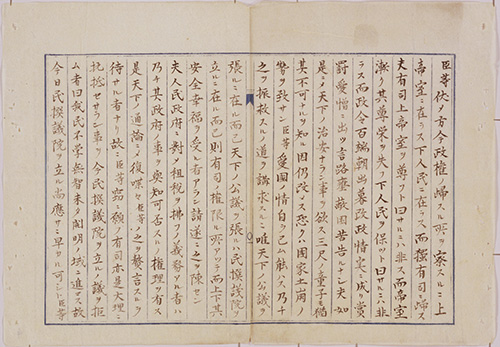 臣等伏〆方今政権ノ帰スル所ヲ察スルニ上
帝室ニ在ラス下人民ニ在ラス而獨有司ニ帰ス
夫有司上帝室ヲ尊フト曰ハサルニハ非ス而帝室
漸ク其尊栄ヲ失フ下人民ヲ保ツト曰ハサルニハ非
ラス而政令百端朝出暮改政情実ニ成リ賞
罰愛憎ニ出ツ言路壅蔽困苦告ルナシ夫如
是ニ〆天下ノ治安ナラン事ヲ欲ス三尺ノ童子モ猶
其不可ナルヲ知ル因仍改メス恐クハ國家土崩ノ
勢ヲ致サン臣等愛國ノ情自ラ已ム能ハス乃チ
之ヲ振救スルノ道ヲ講求スルニ唯天下ノ公議ヲ
張ルニ在ル而已天下ノ公議ヲ張ルハ民撰議院ヲ
立ルニ在ル而已則有司ノ権限ル所アツテ而上下其
安全幸福ヲ受ル者アラン請遂ニ之ヲ陳セン
夫人民政府ニ對〆租税ヲ拂フノ義務アル者ハ
乃チ其政府ノ事ヲ與知可否スルノ権理ヲ有ス
是天下ノ通論ニ〆復喋々臣等ノ之ヲ贅言スルヲ
待サル者ナリ故ニ臣等竊ニ願フ有司亦是大理ニ
抗抵セサラン事ヲ今民撰議院ヲ立ルノ議ヲ拒
ム者曰我民不学無智未タ開明ノ域ニ進マス故ニ
今日民撰議院ヲ立ル尚應サニ早カル可シト臣等